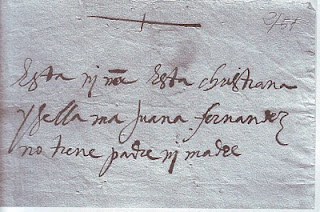 Esta niña Esta christiana
y sella ma Juana fernandez
no tiene padre nj madre